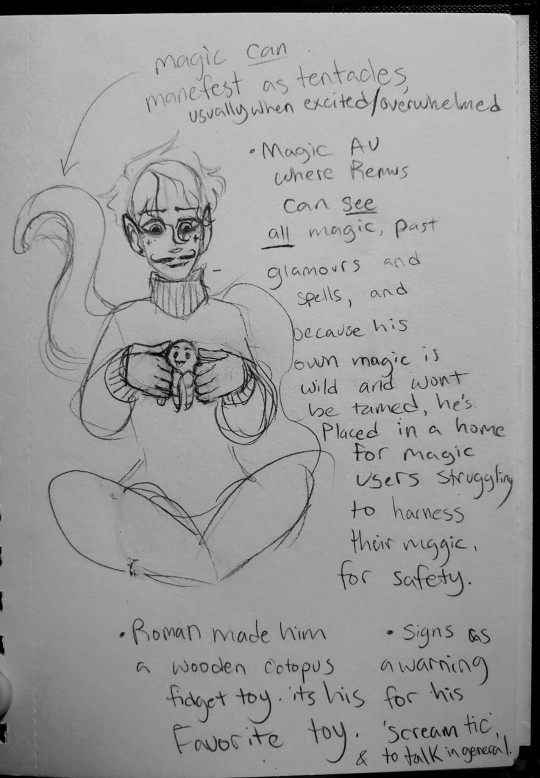 magic can
manefest as tentacles,
usually when excited/overwhelmed
• Magic AU
where Remus
can see
all magic, past
glamours and
spells, and
because his
own magic is
wild and wont
be tamed, he's
Placed in a home
for magic
users struggling
to harness
their magic,
for safety.
• Roman made him
a wooden octopus
fidget toy. its his
Favorite toy.
• Signs as
a warning
for his
'scream tic',
& to talk in general.